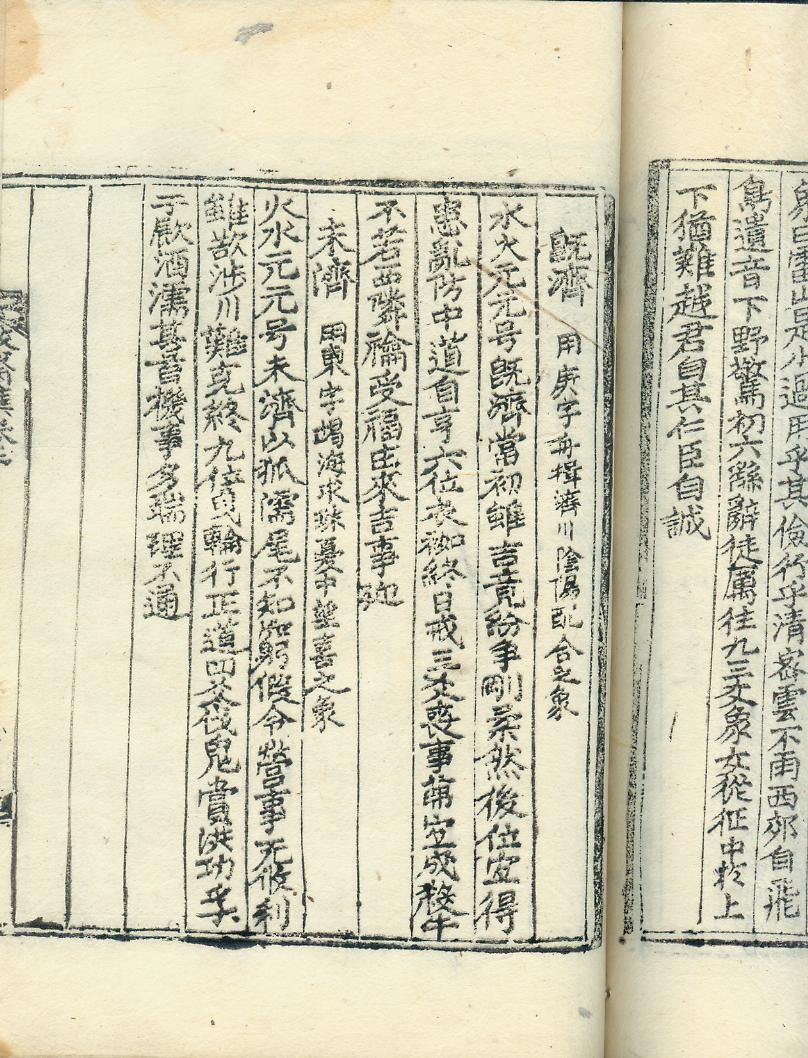 自雷出是小過用乎其儉行乎清密雲不雨西郊自飛
鳥遺音下野驚初六繇辭徒厲往九三爻象女從征中於上
下猶難越君自其仁臣自誠
旣濟 用庚字舟揖濟川陰陽配合之象
水火元元号旣濟當初雖吉竟紛爭剛柔然後位宜得
患亂防中道自亨六位衣袽終日戒三爻喪事葡宜成殺牛
不若西隣禴受福由來吉事迎
未濟 用東字 海求珠憂中望喜之象
火水元元号未濟以狐濡尾不知躬假令營事无攸利
雖欲涉川難克終九位曳輪行正道四爻伐鬼賞洪功孚
于飮酒濡其首機事多端理不通